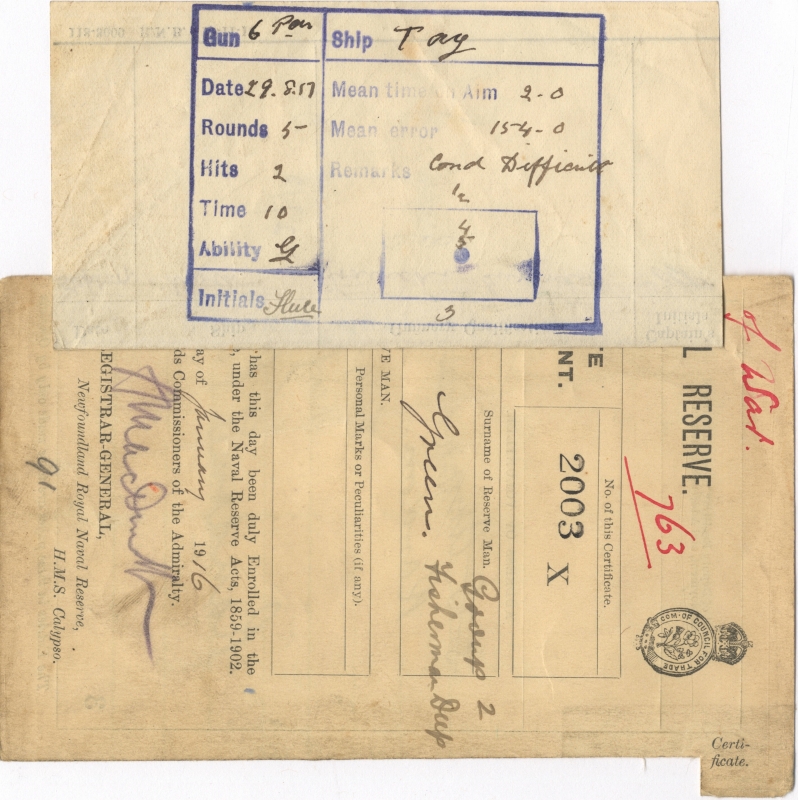 Gun 6 Pdr
Ship Tay
Date 29.8.17
Mean time on Aim 2-0
Rounds 5
Mean error 154-0
Hits 2
Remarks Cond Difficult
Time 10
Ability G
Initials
1/2
4/5
3
of War.
L RESERVE.
763
TE
NT.
No. of this Certificate.
2003 X
COM. OF COUNCIL FOR TRADE
Surname of Reserve Man.
Group 2
Green.
Fisherman Dup
VE MAN.
Personal Marks or Peculiarities (if any).
has this day been duly Enrolled in the
, under the Naval Reserve Acts, 1859-1902.
ay of January 1916
ds Commissioners of the Admiralty.
EGISTRAR-GENERAL,
Newfoundland Royal Naval Reserve,
H.M.S. Calypso.
91
Certi-
ficate.